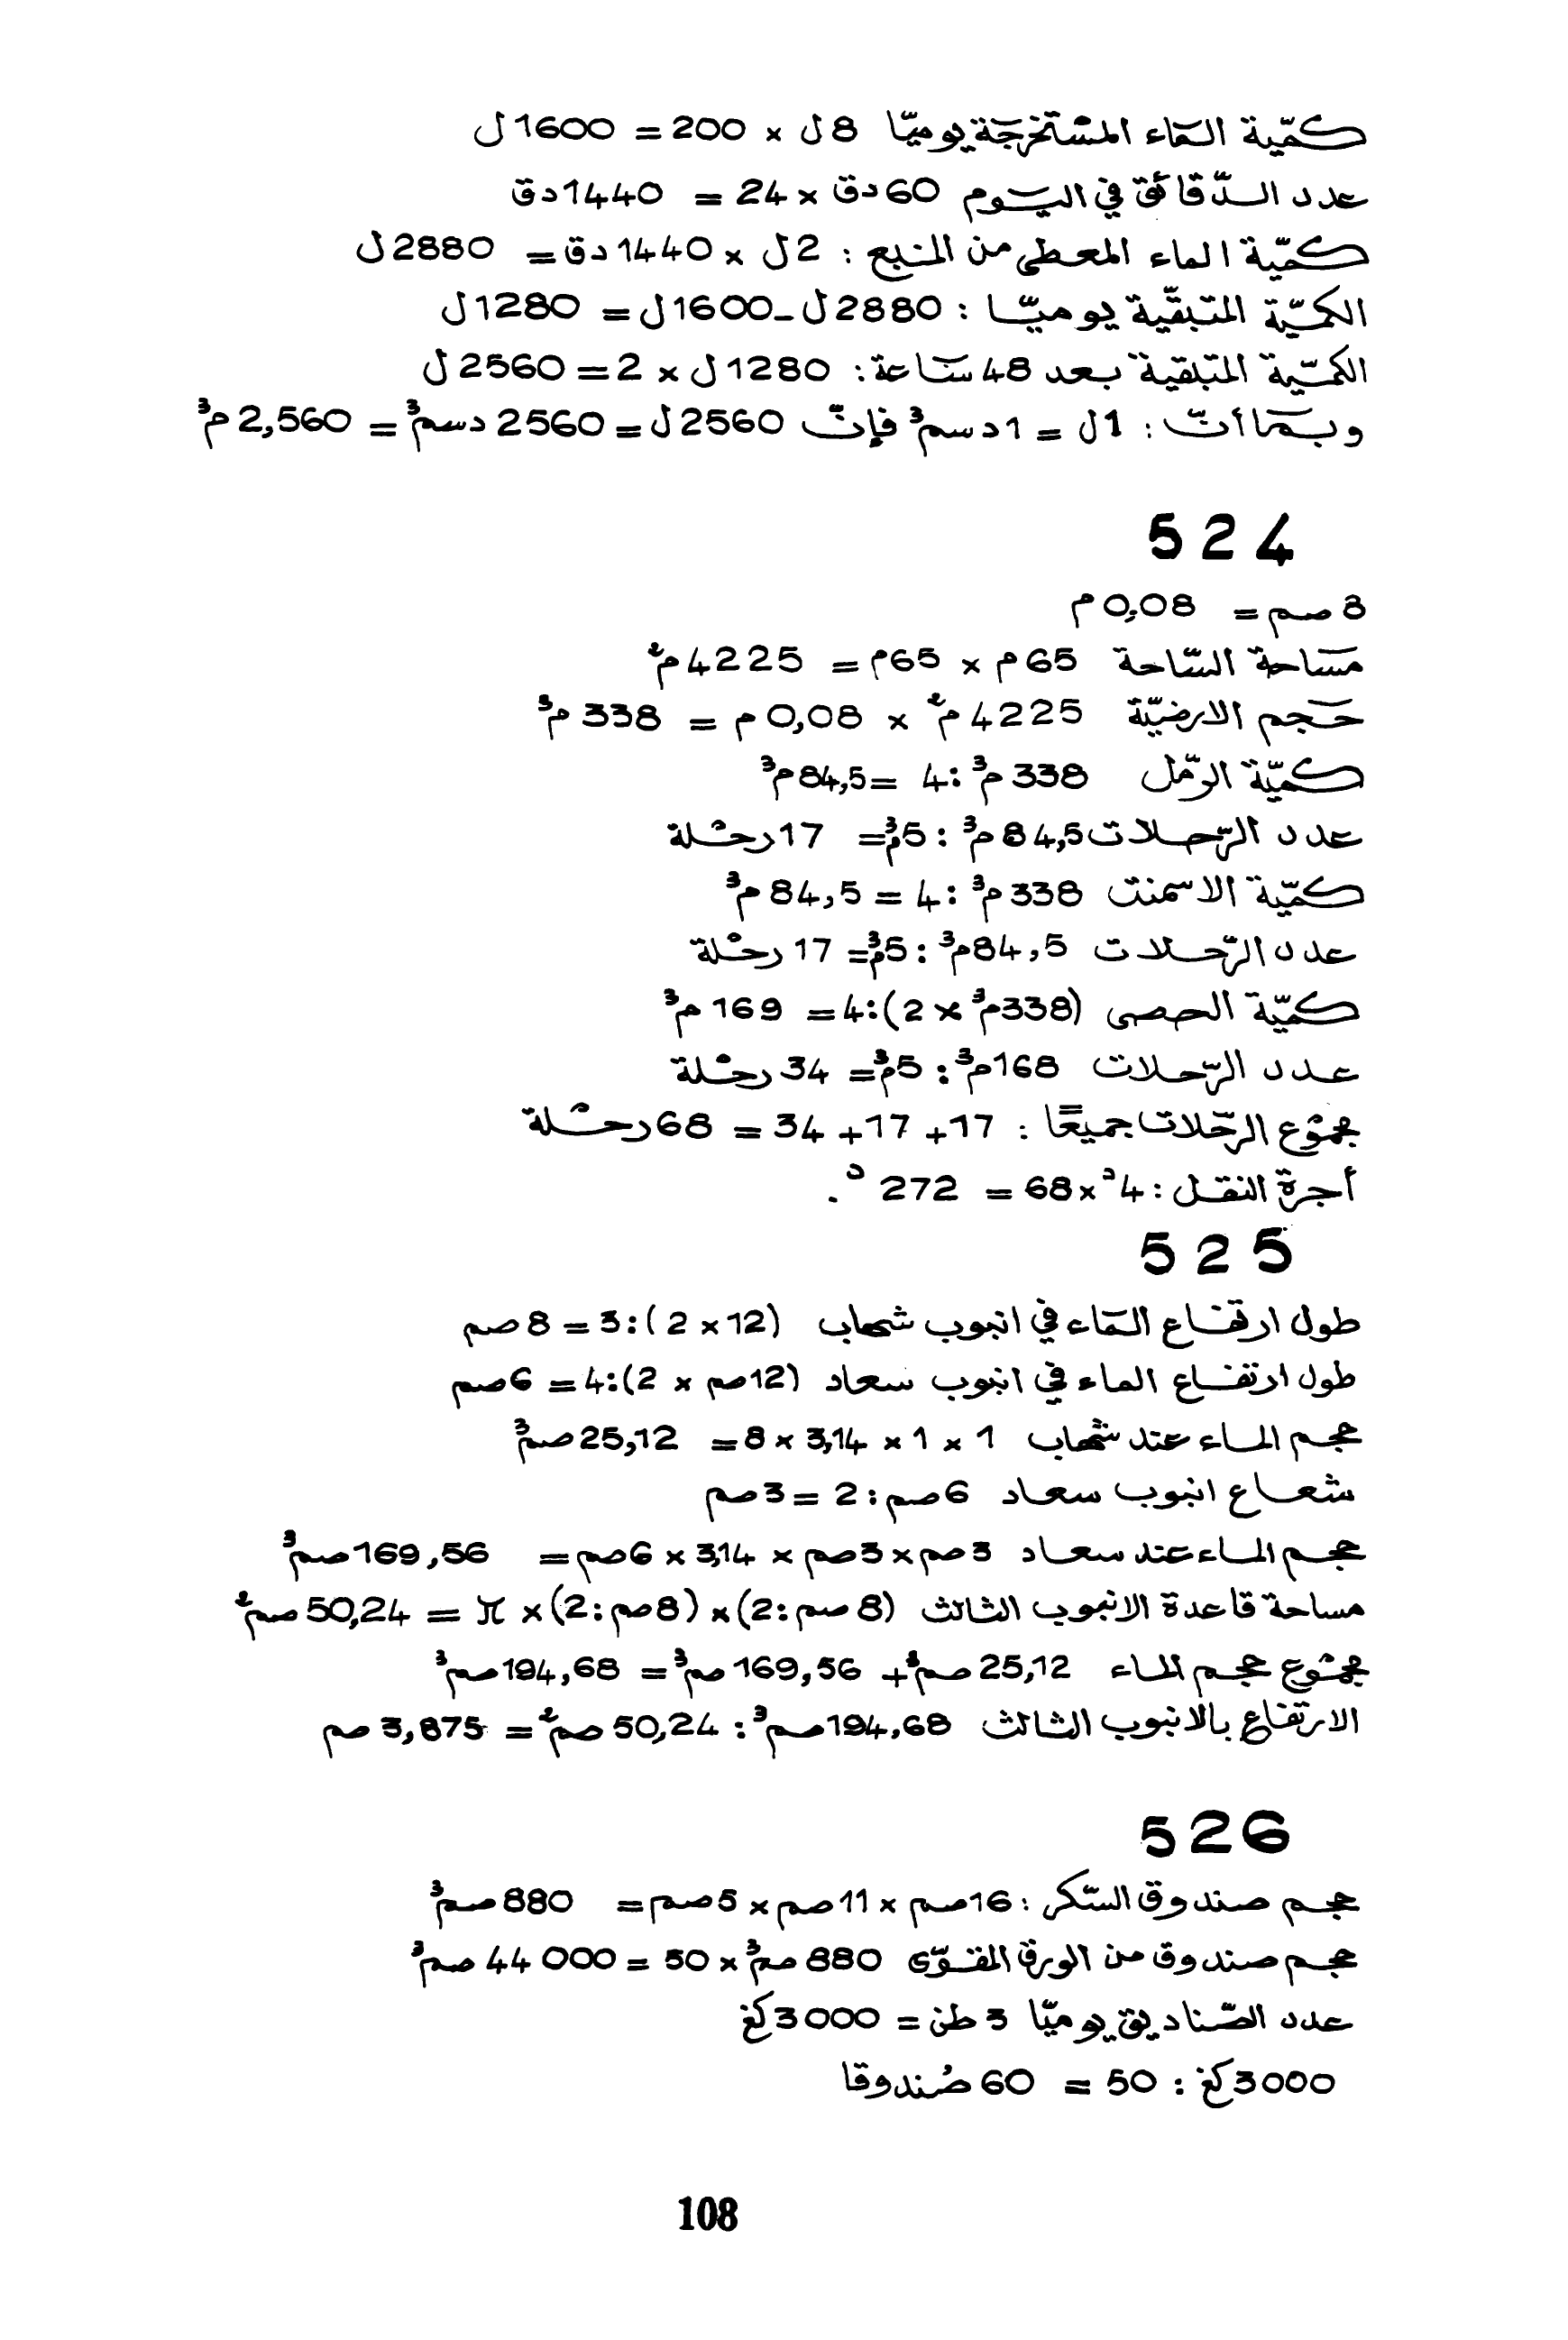 كمّية المَاء المسْتخرجَة يوميّا 8ل × 200 = 1600ل
عدد الدّقائق في اليَوم 60دق × 24 = 1440دق
كمّية الماء المعطى من المنبع : 2ل × 1440دق = 2880ل
الكميّة المتبقّية يوميّا : 2880ل - 1600ل = 1280ل
الكمّية المتبقية بعد 48 سَاعة : 1280ل × 2 = 2560ل
وبمَا أنّ : 1ل = 1دسم³ فإنّ 2560ل = 2560 دسم³ = 2,560 م³
524
8 صم = 0,08 م
مسَاحة السّاحة 65م × 65م = 4225م²
حَجم الارضيّة 4225م² × 0,08 م = 338 م³
كميّة الرّمل 338 م³ : 4 = 84,5م³
عدد الرّحلات 84,5م³ : 5م³ = 17 رحْلة
كمّية الاسمنت 338م³ : 4 = 84,5 م³
عدد الرّحلات 84,5م³ : 5م³ = 17 رحْلة
كميّة الحصى (338م³ × 2) : 4 = 169 م³
عدد الرّحلات 168م³ : 5م³ = 34 رحْلة
مجمُوع الرّحَلات جميعًا : 17 + 17 + 34 = 68 رحْلة
أجرة النقل : 4د × 68 = 272 د .
525
طول ارتفَاع المَاء في انبوب شهاب (12 × 2) : 3 = 8 صم
طول ارتفاع الماء في انبوب سعاد (12صم × 2) : 4 = 6صم
حجم الماء عند شهاب 1 × 1 × 3,14 × 8 = 25,12صم³
شعاع انبوب سعاد 6صم : 2 = 3صم
حجم الماء عند سعاد 3صم × 3صم × 3,14 × 6صم = 169,56صم³
مساحة قاعدة الانبوب الثالث (8صم : 2) × (8صم : 2) × π = 50,24صم²
مجمُوع حجم الماء 25,12صم³ + 169,56صم³ = 194,68صم³
الارتفاع بالانبوب الثالث 194,68صم³ : 50,24صم² = 3,875 صم
526
حجم صندوق السّكر : 16صم × 11صم × 5صم = 880صم³
حجم صندوق من الورق المقوّى 880صم³ × 50 = 44 000 صم³
عدد الصّناديق يوميّا 3 طن = 3000كغ
3000كغ : 50 = 60 صُندوقا
108